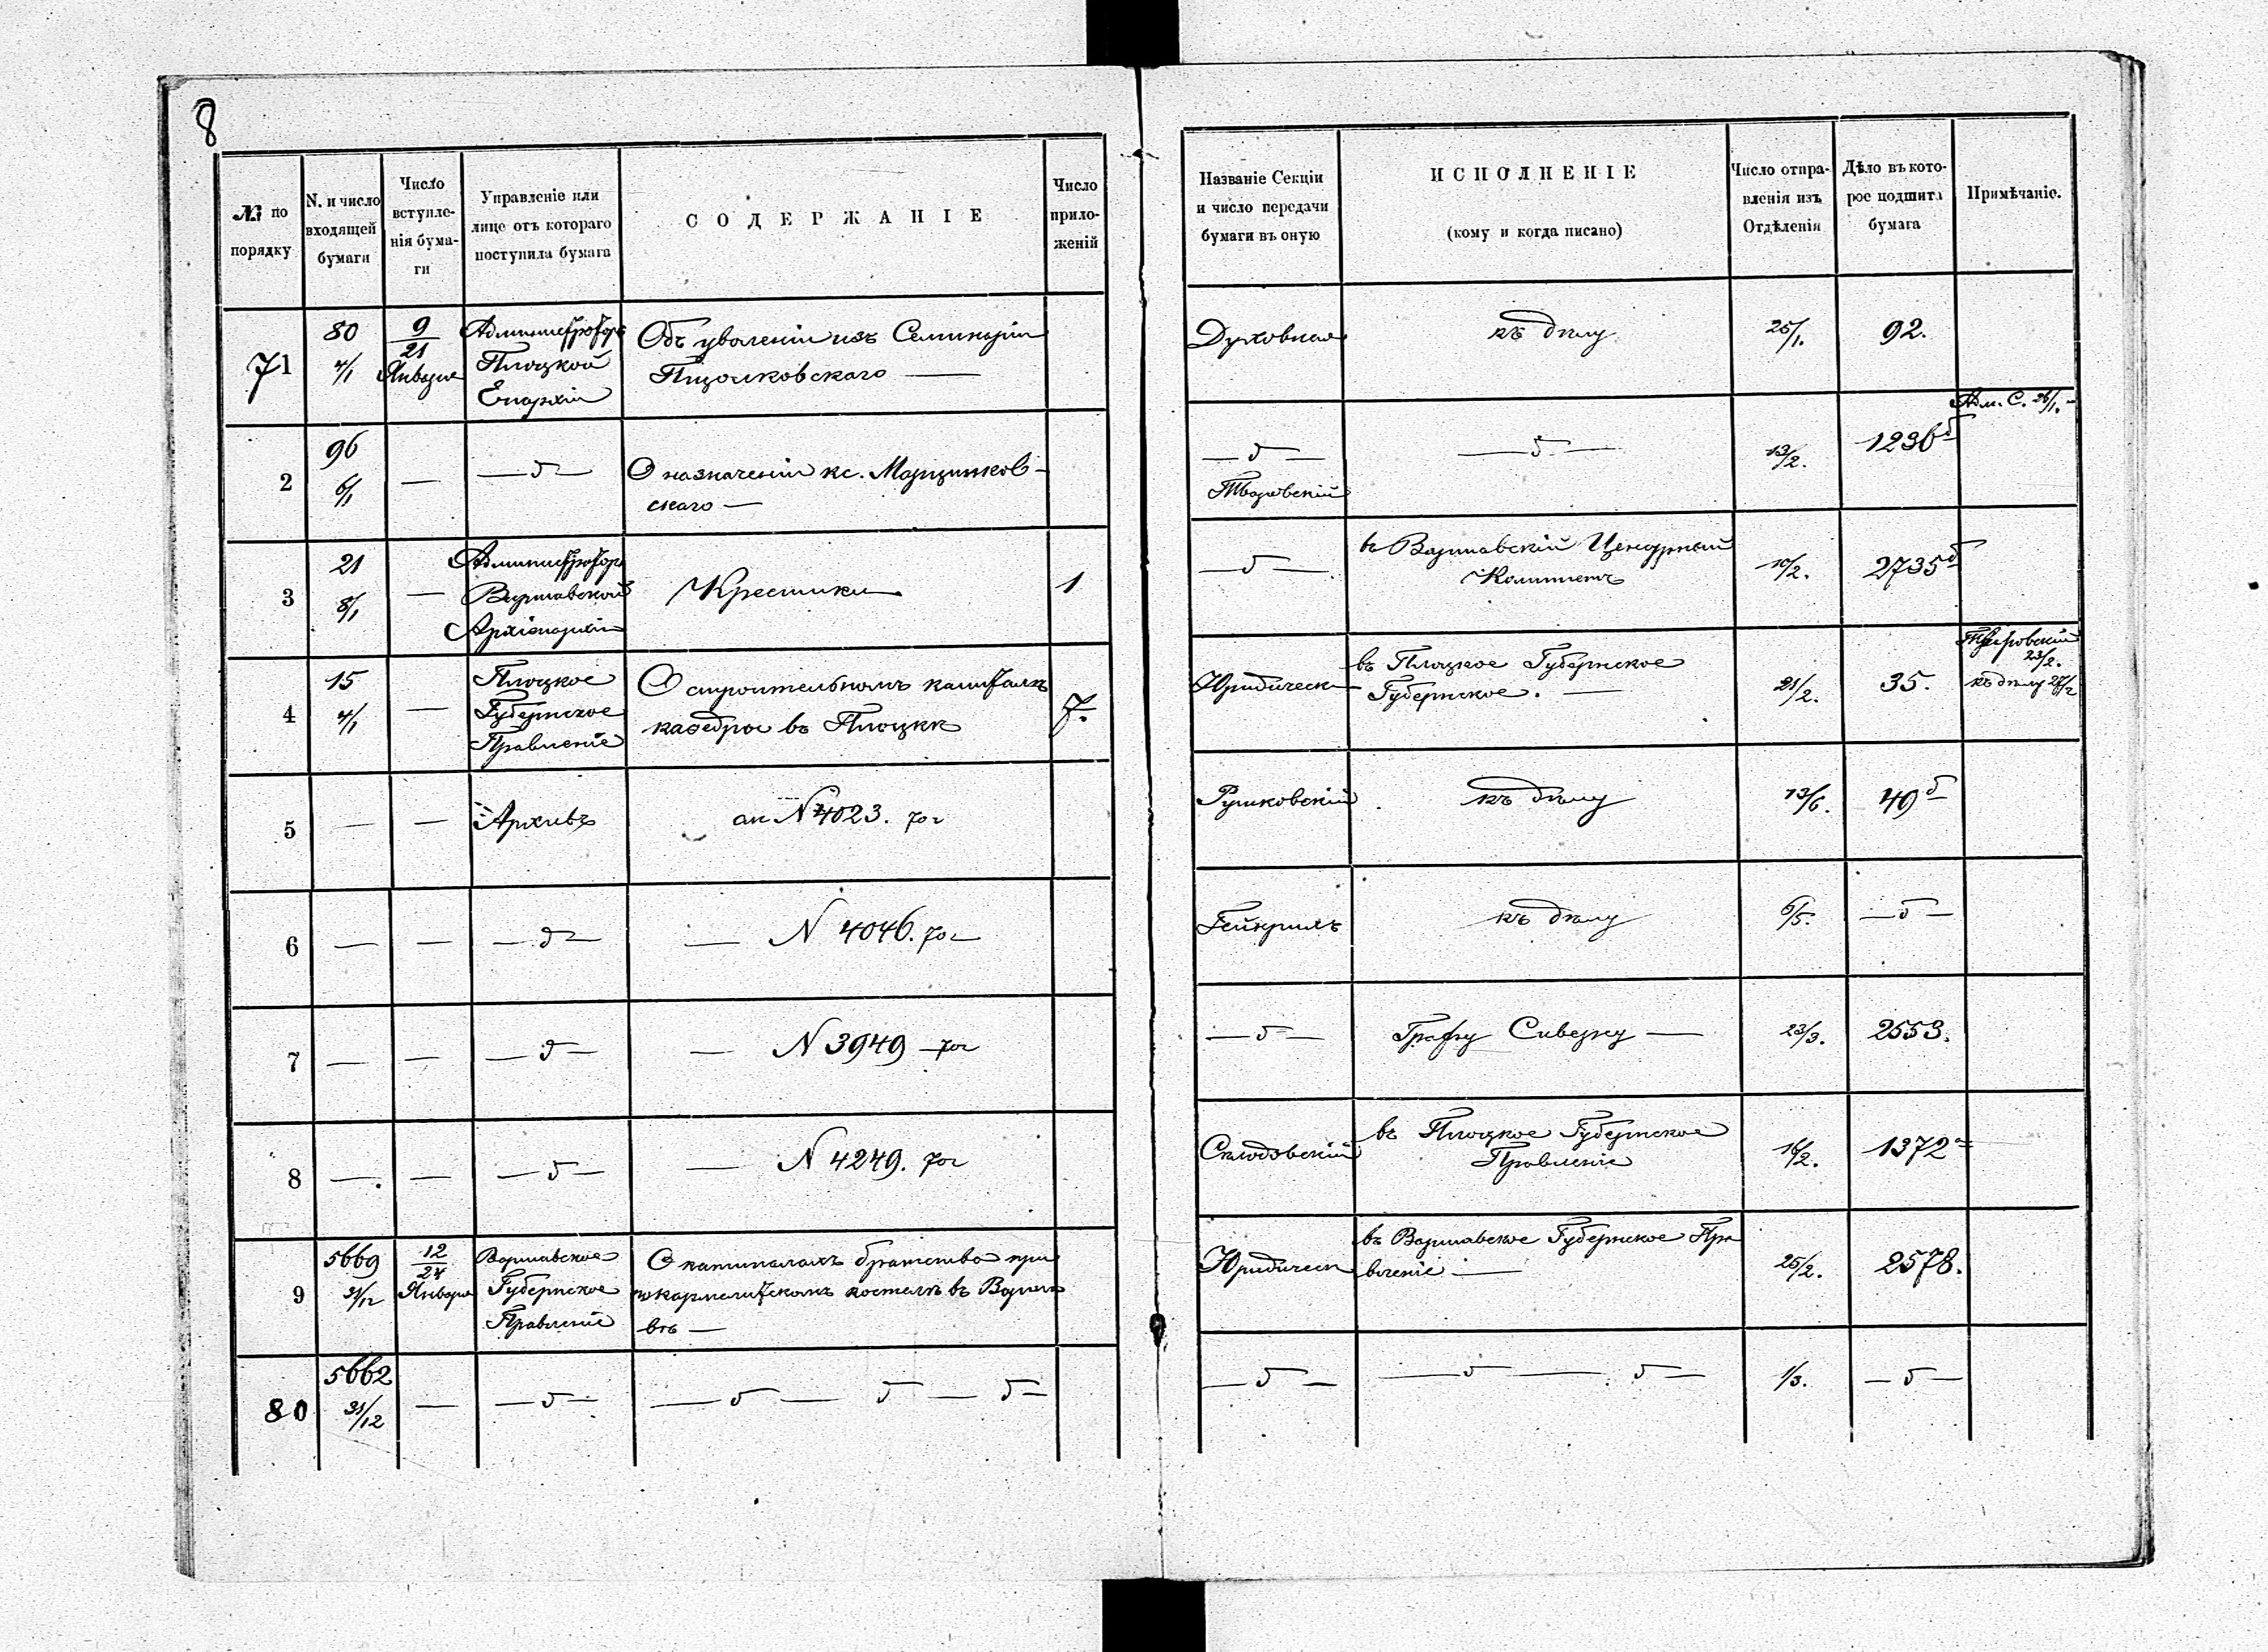 8
№ по порядку
N. и число входящей бумаги
Число вступленія бумаги
Управленіе или лице отъ котораго поступила бумага
СОДЕРЖАНІЕ
Число приложеній
Названіе Секціи и число передачи бумаги въ оную
ИСПОЛНЕНІЕ
(кому и когда писано)
Число отправленія изъ Отдѣленія
Дѣло въ которое подшита бумага
Примѣчаніе.
71
80
4/1
9/21 Января
Администраторъ
Плоцкой
Епархіи
Объ уволеніи изъ Семинаріи
Духовная
къ дѣлу
25/1.
92.
2
96
6/1
—
— д —
О назначеніи кс. Марцинков-
скаго —
— д —
— д —
13/2.
1236б
3
21
8/1
—
Администраторъ
Варшавской
Архіепархіи
Крестики
1
— д —
въ Варшавскій Цензурный
Комитетъ
10/2.
2735б
4
15
4/1
—
Плоцкое
Губернское
Правленіе
О строительномъ капиталѣ
каѳедры въ Плоцкѣ
7.
Юридическ
въ Плоцкое Губернское
Губернское. —
21/2.
35.
23/2.
къ дѣлу
5
—
—
Архивъ
N 4023.
Рушковскій
къ дѣлу
13/6.
49б
6
—
—
— д —
— N 4046.
Гейнрихъ
къ дѣлу
6/5.
— д —
7
—
—
— д —
— N 3949
— д —
Графу Сиверсу —
23/3.
2553.
8
—
—
— д —
— N 4249.
Склодовскій
въ Плоцкое Губернское
Правленіе
16/2.
1372а
9
5669
31/12
12/24 Января
Варшавское
Губернское
Правленіе
О капиталахъ братства при
покармелитскомъ костелѣ въ Варша
вѣ —
Юридическ
въ Варшавское Губернское Пра
вленіе —
25/2.
2578.
80
5662
31/12
—
— д —
— д — д — д —
— д —
— д — д —
1/3.
— д —